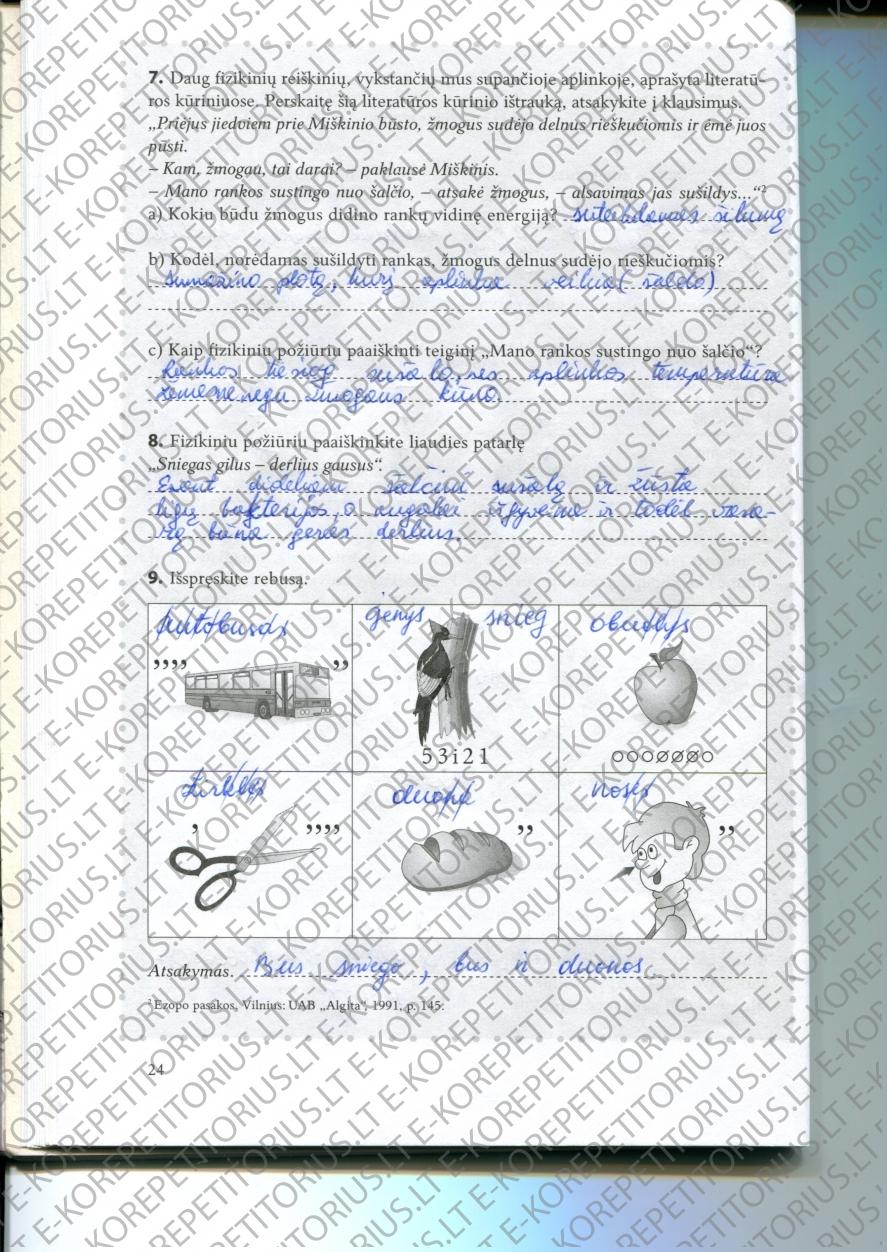 7. Daug fizikinių reiškinių, vykstančių mus supančioje aplinkoje, aprašyta literatū-
ros kūriniuose. Perskaitę šią literatūros kūrinio ištrauką, atsakykite į klausimus.
„Priėjus jiedviem prie Miškinio būsto, žmogus sudėjo delnus rieškučiomis ir ėmė juos
pūsti.
– Kam, žmogau, tai darai? – paklausė Miškinis.
– Mano rankos sustingo nuo šalčio, – atsakė žmogus, – alsavimas jas sušildys...“²
a) Kokiu būdu žmogus didino rankų vidinę energiją? suteikdamas šilumą
b) Kodėl, norėdamas sušildyti rankas, žmogus delnus sudėjo rieškučiomis?
sumažino plotą, kurį aplinka veikia (šaldo)
c) Kaip fizikiniu požiūriu paaiškinti teiginį „Mano rankos sustingo nuo šalčio“?
Rankos tiesiog sušalo, nes aplinkos temperatūra
žemesnė negu žmogaus kūno.
8. Fizikiniu požiūriu paaiškinkite liaudies patarlę
„Sniegas gilus – derlius gausus“.
Esant dideliem šalčiui sušalą ir žūsta
ligų bakterijos, o augalai išgyvena ir todėl vasa-
rą būna geras derlius.
9. Išspręskite rebusą.
Autobusas genys snieg obuolys
,,,, ,,
5 3 i 2 1
žirklės duona nosis
, ,,,, ,, ,,
Atsakymas. Bus sniego, bus ir duonos
² Ezopo pasakos, Vilnius: UAB „Algita“, 1991, p. 145.
24
E-KOREPETITORIUS.LT